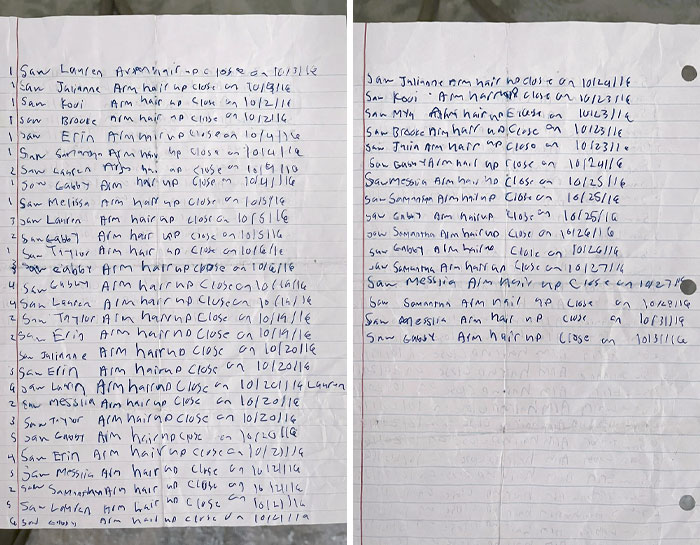 1 Saw Lauren Arm hair up close on 10/3/16
1 Saw Julianne Arm hair up close on 10/3/16
1 Saw Kovi Arm hair up close on 10/2/16
1 Saw Brooke Arm hair up close on 10/2/16
1 Saw Erin Arm hair up close on 10/4/16
1 Saw Samantha Arm hair up close on 10/4/16
2 Saw Lauren Arm hair up close on 10/4/16
1 Saw Gabby Arm hair up close on 10/4/16
1 Saw Melissa Arm hair up close on 10/5/16
3 Saw Lauren Arm hair up close on 10/5/16
2 Saw Gabby Arm hair up close on 10/5/16
1 Saw Taylor Arm hair up close on 10/6/16
3 Saw Gabby Arm hair up close on 10/6/16
4 Saw Gabby Arm hair up close on 10/19/16
4 Saw Lauren Arm hair up close on 10/19/16
2 Saw Taylor Arm hair up close on 10/19/16
2 Saw Erin Arm hair up close on 10/19/16
Saw Julianne Arm hair up close on 10/20/16
3 Saw Erin Arm hair up close on 10/20/16
Saw Arm hair up close on 10/20/16 Lauren
2 Saw Messiia Arm hair up close on 10/20/16
3 Saw Taylor Arm hair up close on 10/20/16
5 Saw Gabby Arm hair up close on 10/20/16
4 Saw Erin Arm hair up close on 10/21/16
3 Saw Messiia Arm hair up close on 10/21/16
2 Saw Samantha Arm hair up close on 10/21/16
5 Saw Lauren Arm hair up close on 10/21/16
Saw Gabby Arm hair up close on 10/21/16
Saw Julianne Arm hair up close on 10/24/16
Saw Kovi Arm hair up close on 10/23/16
Saw Mya Arm hair up close on 10/23/16
Saw Brooke Arm hair up close on 10/23/16
Saw Arm hair up close on 10/23/16
Saw Gabby Arm hair up close on 10/24/16
Saw Messiia Arm hair up close on 10/25/16
Saw Samantha Arm hair up close on 10/25/16
Saw Gabby Arm hair up close on 10/25/16
Saw Samantha Arm hair up close on 10/26/16
Saw Gabby Arm hair up close on 10/26/16
Saw Samantha Arm hair up close on 10/27/16
Saw Messiia Arm hair up close on 10/27/16
Saw Samantha Arm hair up close on 10/28/16
Saw Messiia Arm hair up close on 10/31/16
Saw Gabby Arm hair up close on 10/31/16